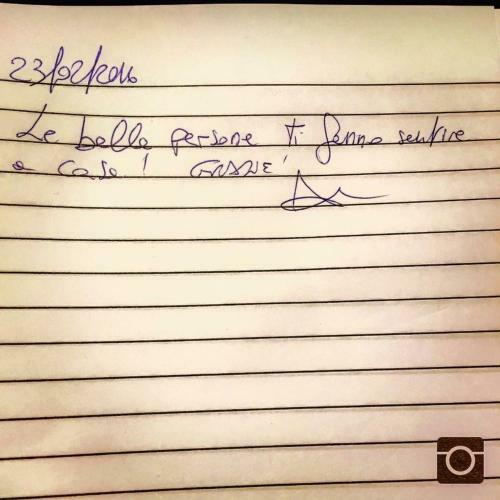 23/02/2016
Le belle persone ti fanno sentire
a casa! GRAZIE!